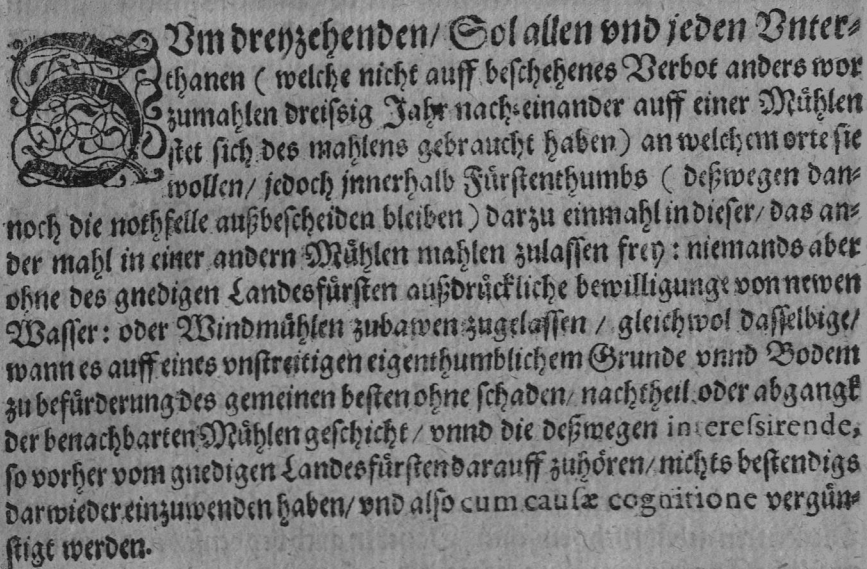 ZUm dreyzehenden/ Sol allen vnd jeden Vnter-
thanen ( welche nicht auff beschehenes Verbot anders wor
zumahlen dreissig Jahr nach-einander auff einer Mühlen
stet sich des mahlens gebraucht haben ) an welchem orte sie
wollen/ jedoch jnnerhalb Fürstenthumbs ( deßwegen dan-
noch die nothfelle außbescheiden bleiben ) darzu einmahl in dieser/ das an-
der mahl in einer andern Mühlen mahlen zulassen frey : niemands aber
ohne des gnedigen Landesfürsten außdrückliche bewilligunge von newen
Wasser: oder Windmühlen zubawen zugelassen / gleichwol dasselbige/
wann es auff eines vnstreitigen eigenthumblichem Grunde vnnd Bodem
zu befürderung des gemeinen besten ohne schaden/ nachtheil oder abgangk
der benachbarten Mühlen geschicht/ vnnd die deßwegen interessirende,
so vorher vom gnedigen Landesfürsten darauff zuhören/ nichts bestendigs
darwieder einzuwenden haben/ vnd also cum causæ cognitione vergün-
stigt werden.